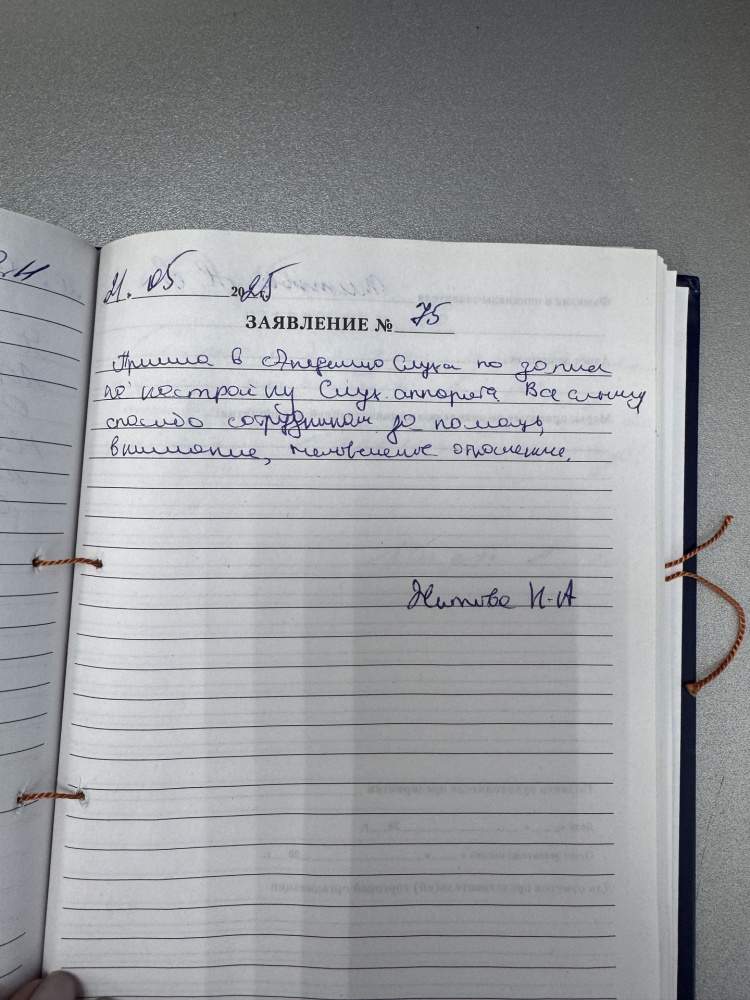 21. 05 2025
ЗАЯВЛЕНИЕ № 75
Пришла в Академию Слуха по записи
по настройку Слух. аппарата. Все слышу
спасибо сотрудникам за помощь,
внимание, человечное отношение.
И.А